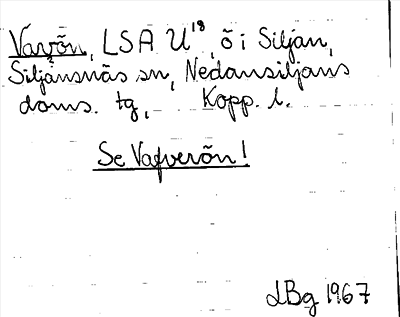 Vavön, LSA U¹⁸, ö i Siljan,
Siljansnäs sn, Nedansiljans
doms. tg, Kopp. l.
Se Vafverön!
LBg 1967